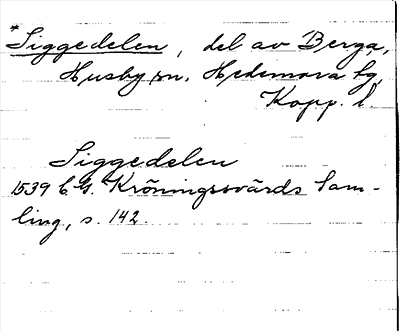 *Siggedelen, del av Berga,
Husby sn, Hedemora tg,
Kopp. l.
Siggedelen
1539 C.G. Kröningssvärds Sam-
ling, s. 142.